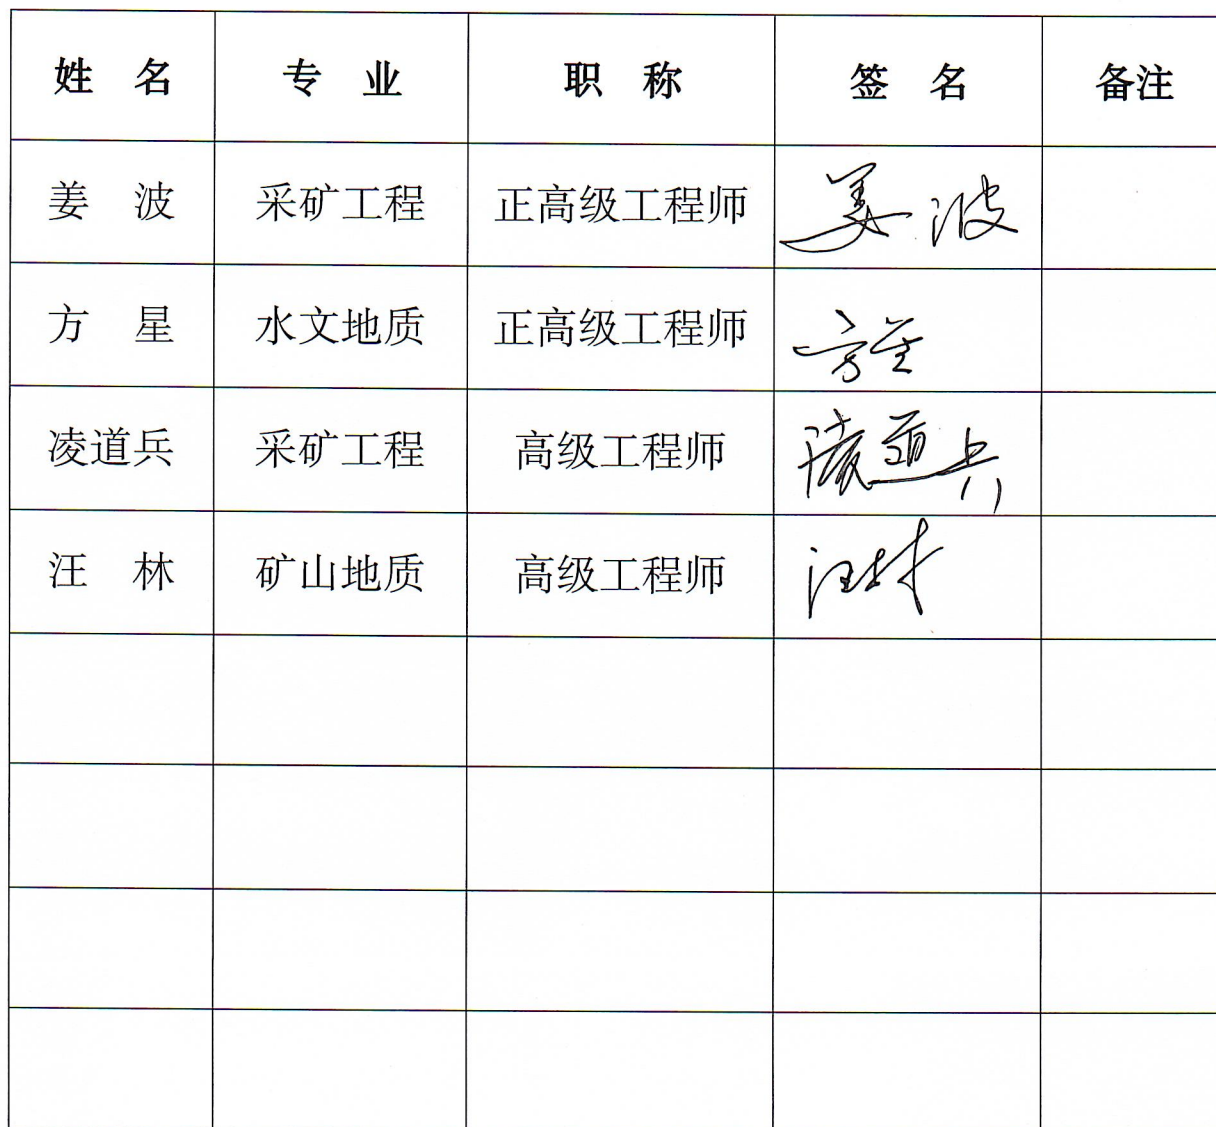 姓 名 专 业 职 称 签 名 备注
姜 波 采矿工程 正高级工程师 姜波
方 星 水文地质 正高级工程师 方星
凌道兵 采矿工程 高级工程师 凌道兵
汪 林 矿山地质 高级工程师 汪林